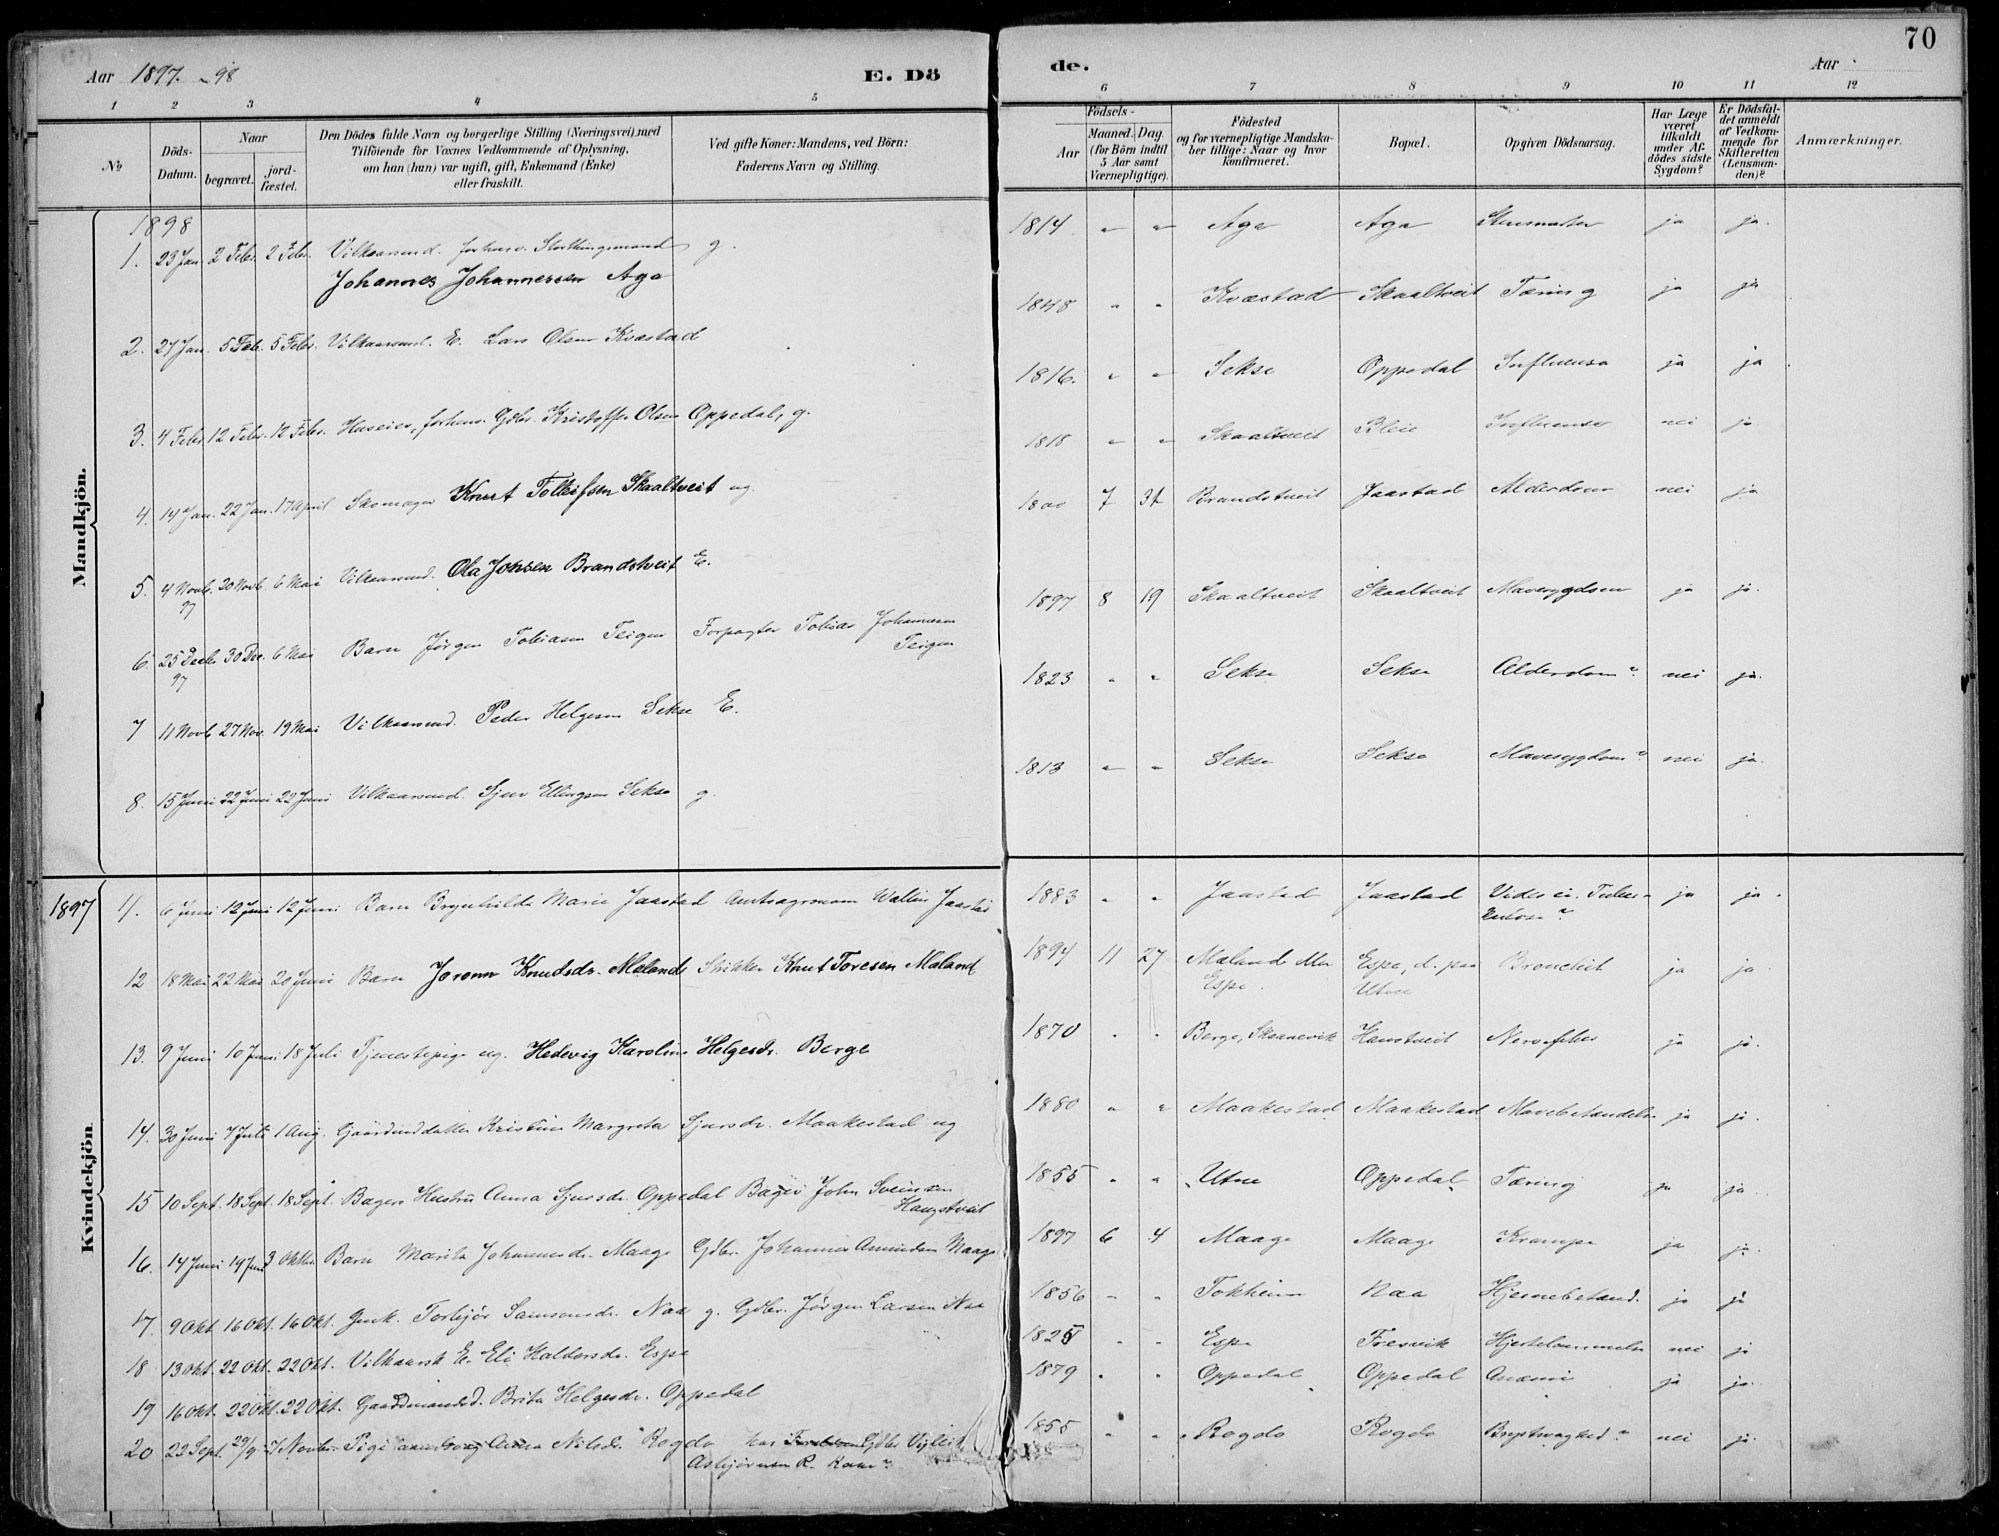 70
Aar 1897. -98
E. Dö
de.
Aar
1 2 3 4 5 6 7 8 9 10 11 12
No
Döds-
Datum.
Naar
begravet.
jord-
fæstet.
Den Dödes fulde Navn og borgerlige Stilling (Næringsvei), med
Tilföiende for Voxnes Vedkommende af Oplysning,
om han (hun) var ugift, gift, Enkemand (Enke)
eller fraskilt.
Ved gifte Koner: Mandens, ved Börn:
Faderens Navn og Stilling.
Födsels-
Aar
Maaned. Dag.
(for Börn indtil
5 Aar samt
Værnepligtige).
Födested
og for værnepligtige Mandska-
ber tillige: Naar og hvor
konfirmeret.
Bopæl.
Opgiven Dödsaarsag.
Har Læge
været
tilkaldt
under Af-
dödes sidste
Sygdom?
Er Dödsfal-
det anmeldt
af Vedkom-
mende for
Skifteretten
(Lensman-
den)?
Anmærkninger.
Mandkjön.
1898
1. 23 Jan. 2 Febr. 2 Febr. Vilkaarsmd. forhenv. Storthingsmand g. 1814 " " Aga Aga ja ja.
Johannes Johannessen Aga
2. 27 Jan. 5 Feb. 5 Febr. Vilkaarsmd. E. Lars Olsen Kvæstad 1848 " " Kvæstad Skaaltveit Tæring ja ja
3. 4 Febr. 12 Febr. 12 Febr. Huseier, forhenv. Gdbr. Kristoffer Olsen Oppedal, g. 1816. " " Sekse Oppedal Influensa ja ja
4. 14 Jan. 22 Jan. 17 April Skomager Knut Tolleifsen Skaaltveit ug. 1818 " " Skaaltveit Bleie Influensa nei ja
5. 4 Novb. 20 Novb. 6 Mai Vilkaarsmd. Ola Johsen Brandstveit E. 1800 7 31 Brandstveit Jaastad Alderdom nei ja
97
6. 25 Decbr 30 Dec. 6 Mai Barn Jørgen Tobiasen Teigen Forpagter Tobias Johannessen 1897 8 19 Skaaltveit Skaaltveit Mavesygdom ja ja.
97 Teigen
7 11 Novb 27 Nov. 19 Mai Vilkaarsmd. Peder Helgesen Sekse E. 1823 " " Sekse Sekse Alderdom? nei ja.
8. 15 Juni 22 Juni 22 Juni Vilkaarsmd. Sjur Ellingsen Sekse g. 1813 " " Sekse Sekse Mavesygdom? nei ja.
Kvindekjön.
1897 11. 6 Juni 12 Juni 12 Juni Barn Brynhilda Marie Jaastad Amtsagronom Jaastad 1883 " " Jaastad Jaastad ja ja
12 18 Mai 22 Mai 20 Juni Barn Joronn Knudsdr. Mæland Strikker Knut Toresen Mæland 1894 11 27 Mæland Espe, d. paa Bronchit ja ja
Espe. Utne
13. 9 Juni 10 Juni 18 Juli Tjenestepige ug. Hedevig Karoline Helgesdr. Berge 1870 " " Berge, Skaanevik Haustveit Nervefeber ja ja.
14. 30 Juni 7 Juli 1 Aug. Gaardmddatter Kristine Margreta Sjursdr. Maakestad ug 1880 " " Maakestad Maakestad Mavebetændelse ja ja.
15 10 Sept. 18 Sept. 18 Sept. Bagers Hustru Anna Sjursdr. Oppedal Bager John Sveinsen 1855 " " Utne Oppedal Tæring ja ja
Haugstveit
16. 14 Juni 19 Juni 3 Oktbr. Barn Marita Johannesdr. Maage Gdbr. Johannes Amundsen Maage 1897 6 4 Maage Maage Krampe ja ja.
17. 9 Okt. 16 Okt. 16 Okt. Gmk. Torbjør Samsonsdr. Naa g. Gdbr. Jørgen Larsen Naa 1856 " " Tokheim Naa Hjernebetænd. ja ja
18 13 Okt. 22 Okt. 22 Okt. Vilkaarsk. E. Eli Haldorsdr. Espe 1825 " " Espe Fresvik nei ja
19 16 Okt. 22 Okt. 22 Okt. Gaardmandsd. Brita Helgesdr. Oppedal 1879 " " Oppedal Oppedal Anæmi ja ja.
20 23 Sept. 29/9 7 Novbr. Pige Anna Nilsdr. Rogdo hos Gdbr 1855 " " Rogdo Rogdo Brystsvaghed? nei ja.
Asbjørnsen R. Kone?